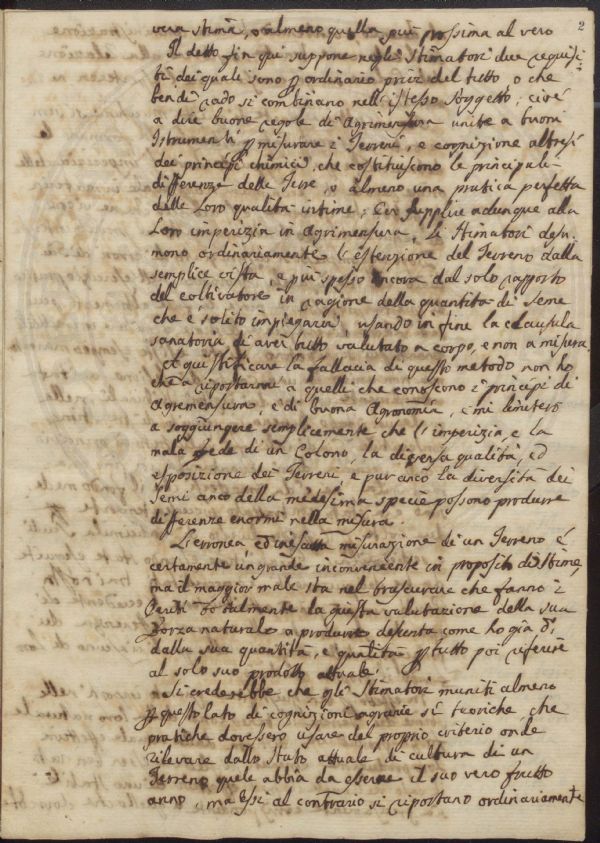 2
vera stima, o almeno quella più prossima al vero
Il detto fin qui suppone negli Stimatori due requisi-
ti dei quali sono p ordinario privi del tutto, o che
ben di rado si combinano nell'istesso Soggetto; cioé
a dire buone regole di Agrimensura unite a buoni
Istrumenti p misurare i Terreni, e cognizione altresì
dei principj chimici, che costituiscono le principali
differenze delle Terre, o almeno una pratica perfetta
delle Loro qualità intime; Per supplire adunque alla
Loro imperizia in Agrimensura, Li Stimatori desu-
mono ordinariamente l'estenzione del Terreno dalla
semplice vista, e più spesso ancora dal solo rapporto
del coltivatore in ragione della quantità di Seme
che è solito impiegarvi, usando in fine la clausula
sanatoria di aver tutto valutato a corpo, e non a misura.
A giustificare la fallacia di questo metodo non ho
che a riportarmi a quelli che conoscono i principj di
Agremensura, e di buona Agronomia, e mi limiterò
a soggiungere semplicemente che l'imperizia, e la
mala fede di un Colono, la diversa qualità, ed
esposizione dei Terreni, e pur anco la diversità dei
Semi anco della medesima specie possono produrre
differenze enormi nella misura.
L'erronea ed inesatta misurazione di un Terreno é
certamente un grande inconveniente in proposito di Stime,
ma il maggior male sta nel trascurare che fanno i
Periti totalmente la giusta valutazione della sua
Forza naturale a produrre desunta come ho già do
dalla sua quantità, e qualità p tutto poi riferire
al solo suo prodotto attuale.
Si crederebbe che gli Stimatori muniti almeno
p questo lato di cognizioni agrarie sì teoriche che
pratiche dovessero usare del proprio criterio onde
rilevare dallo Stato attuale di cultura di un
Terreno quale abbia da essere il suo vero frutto
anno, ma Essi al contrario si riportano ordinariamente